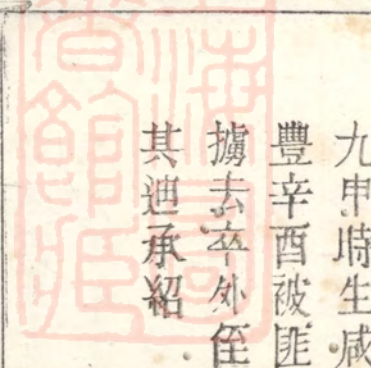 九申時生咸
豐辛酉被匪
擄去卒外侄
其迪承紹